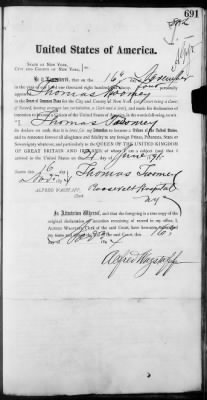 691
United States of America.
STATE OF NEW YORK,
CITY AND COUNTY OF NEW YORK,
Be it Remembered, that on the 16 day of November
in the year of our Lord one thousand eight hundred and ninety four personally
appeared Thomas Twomey in the
Court of Common Pleas for the City and County of New York (said Court being a Court
of Record, having common law jurisdiction, a Clerk and a Seal), and made his declaration of
intention to become a Citizen of the United States of America in the words following, to wit:
I, Thomas Twomey
do declare on oath, that it is bona fide my intention to become a Citizen of the United States,
and to renounce forever all allegiance and fidelity to any foreign Prince, Potentate, State or
Sovereignty whatever, and particularly to the QUEEN OF THE UNITED KINGDOM
OF GREAT BRITAIN AND IRELAND, of whom I am a subject (and that I
arrived in the United States on the 21 June
Sworn this 16 Thomas Twomey
Nov
Roosevelt Hospital
ALFRED WAGSTAFF, NY
Clerk
In Attestation Whereof, and that the foregoing is a true copy of the
original declaration of intention remaining of record in my office, I,
ALFRED WAGSTAFF, Clerk of the said Court, have hereunto subscribed
my name and affixed the seal of the said Court, this 16th
day of Nov 1894
Alfred Wagstaff